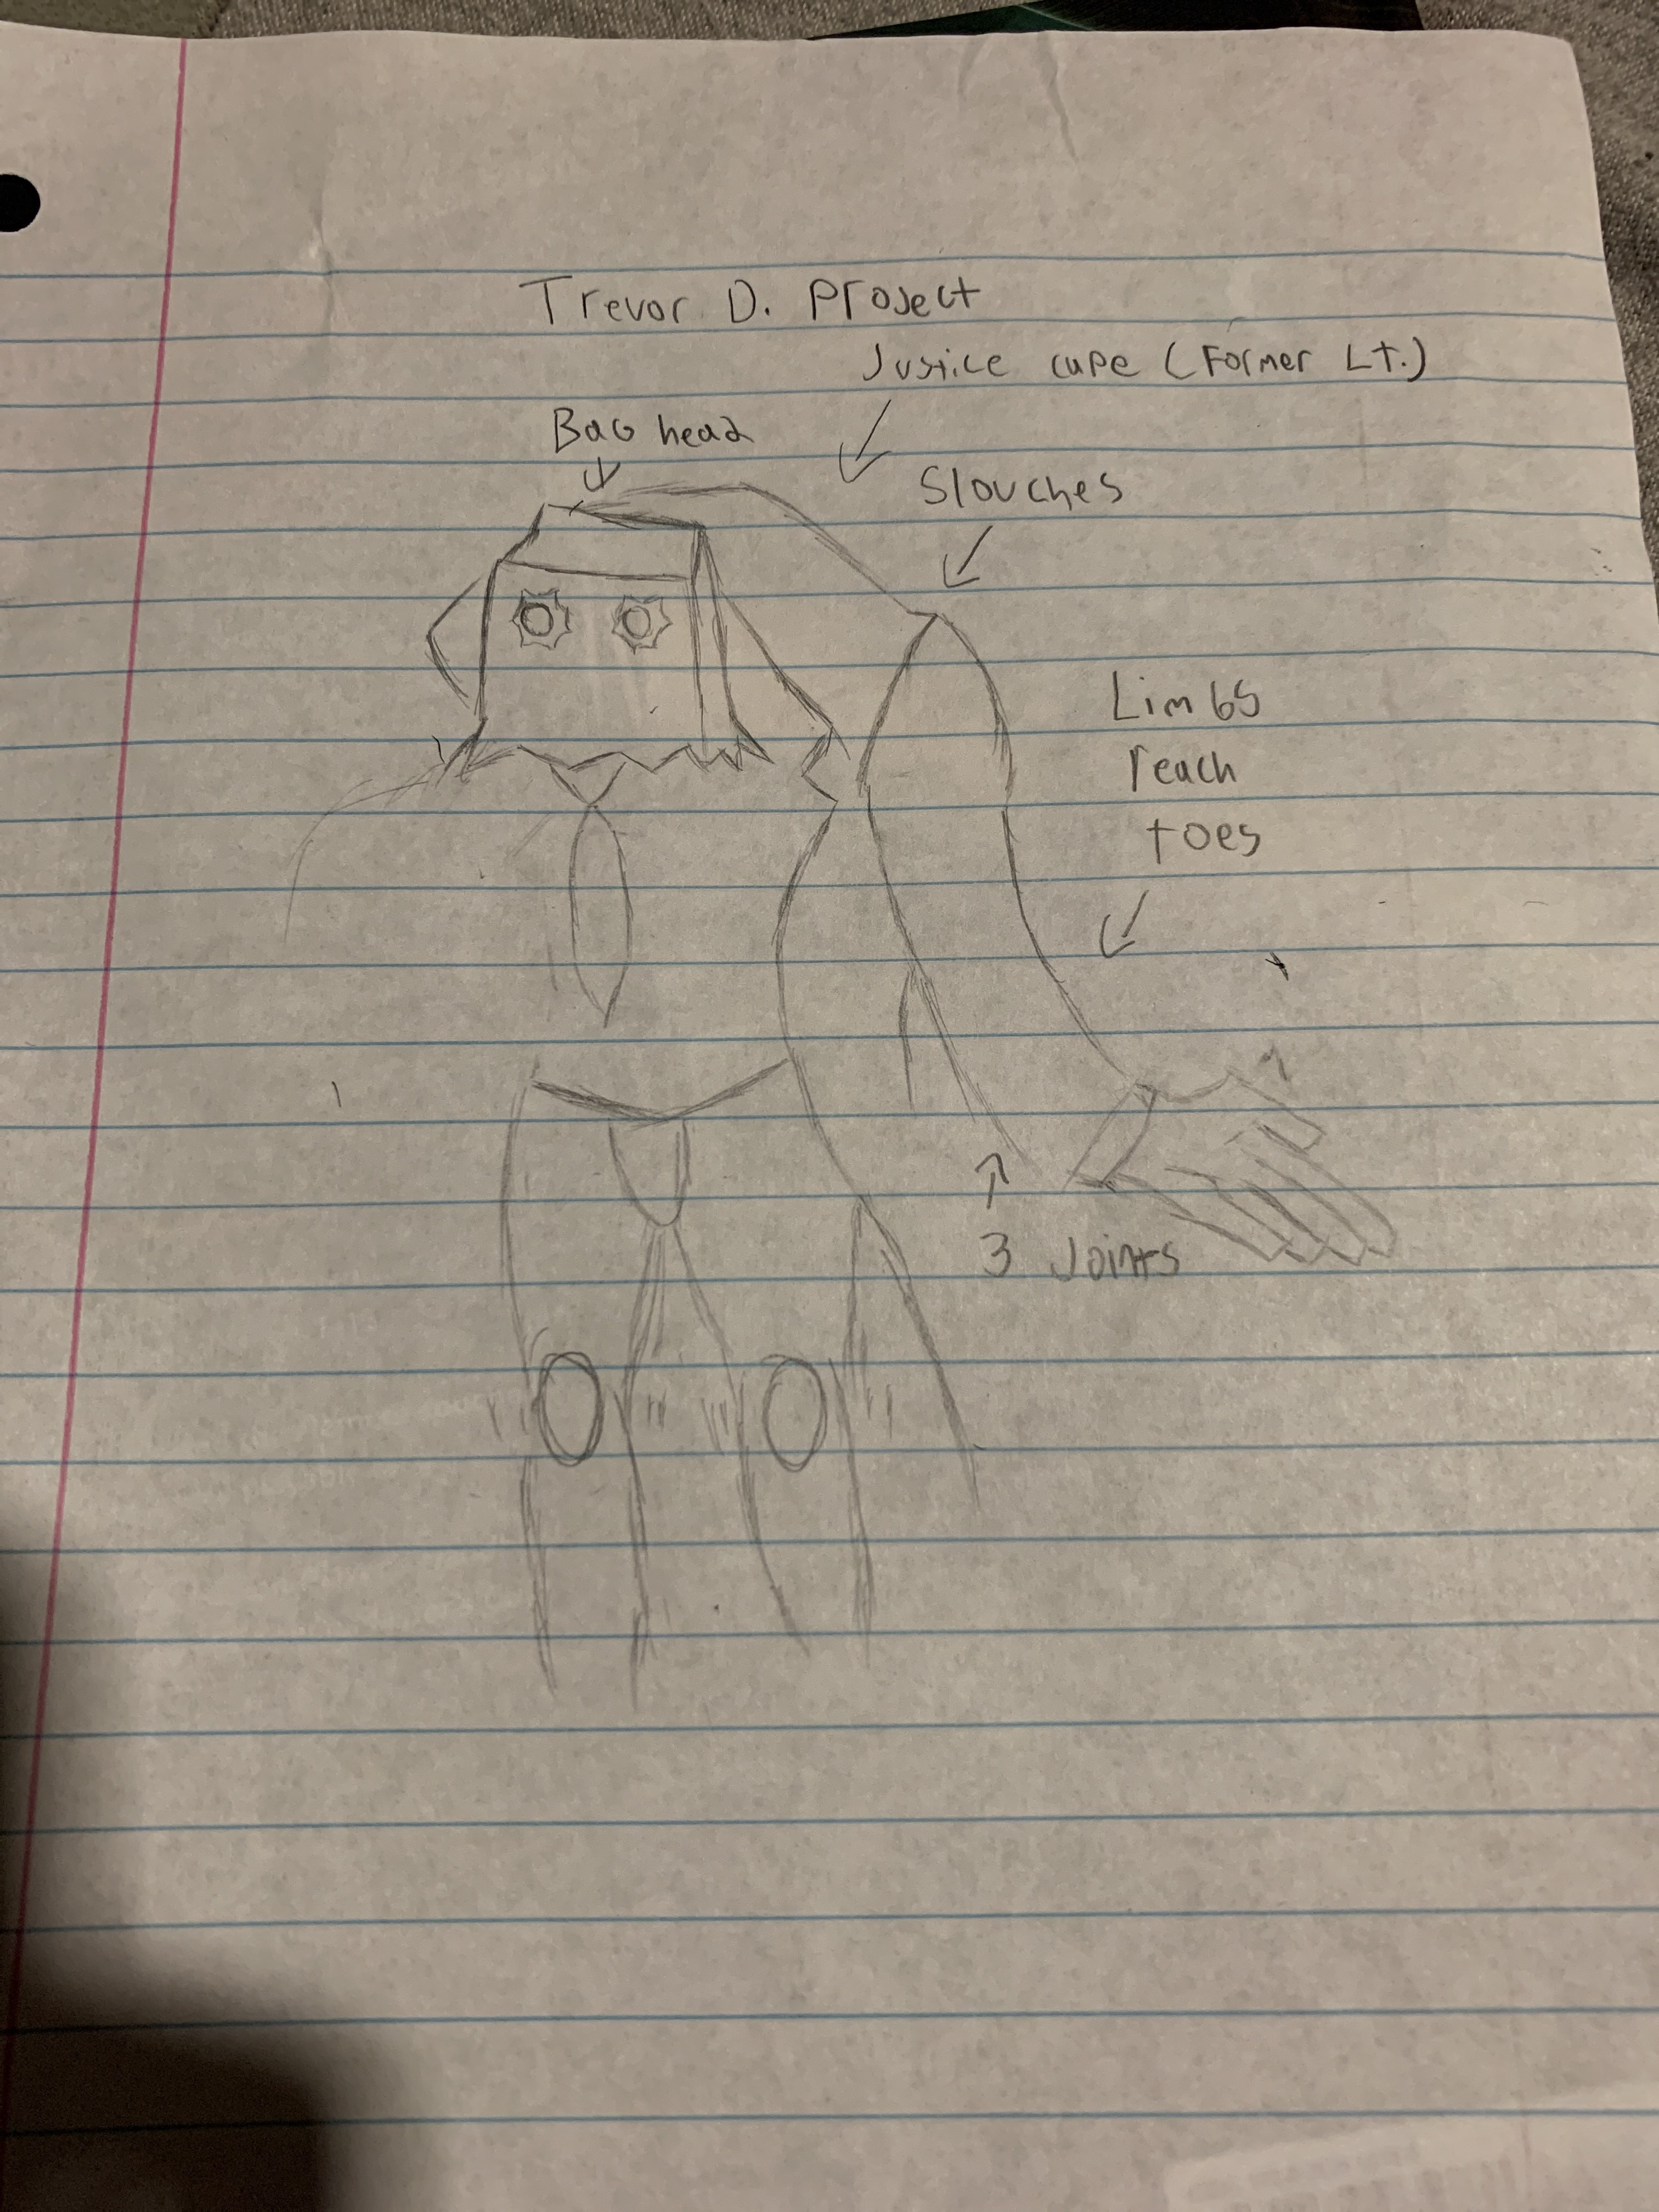 Trevor D. Project
Justice cape (Former Lt.)
Bag head
Slouches
Limbs
reach
toes
3 Joints